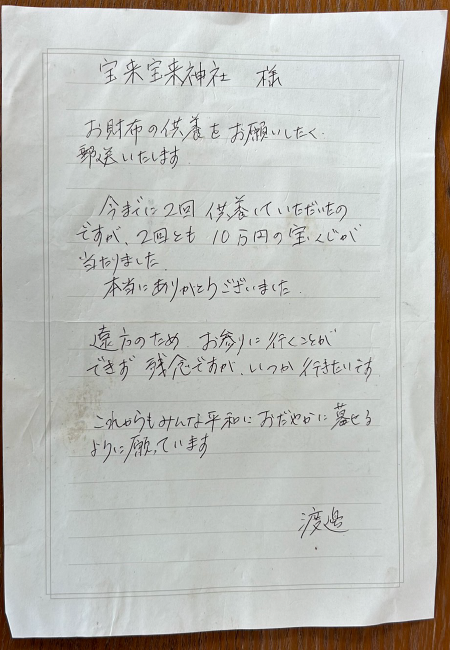 宝来宝来神社 様
お財布の供養をお願いしたく
郵送いたします
今までに2回 供養していただいたの
ですが、2回とも 10万円の宝くじが
当たりました
本当にありがとうございました
遠方のため お参りに行くことが
できず 残念ですが、いつか 行きたいです
これからもみんな平和に おだやかに 暮せる
ように願っています
渡邉